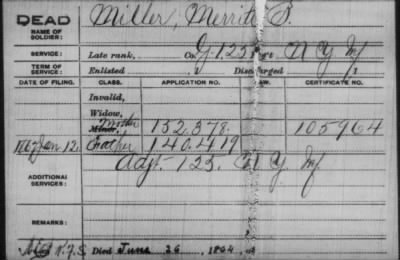 DEAD
NAME OF SOLDIER: Miller, Merritt B.
SERVICE: Late rank, Co. G, 125 Reg't N Y Inf
TERM OF SERVICE: Enlisted , 1 Discharged , 1
DATE OF FILING. CLASS. APPLICATION NO. LAW. CERTIFICATE NO.
Invalid,
Widow,
Mother
Minor, 152.378. 105964
Jan. 12. Father 140.419
ADDITIONAL SERVICES: Adjt. 125. N Y Inf.
REMARKS:
Died June 26, 1864, at